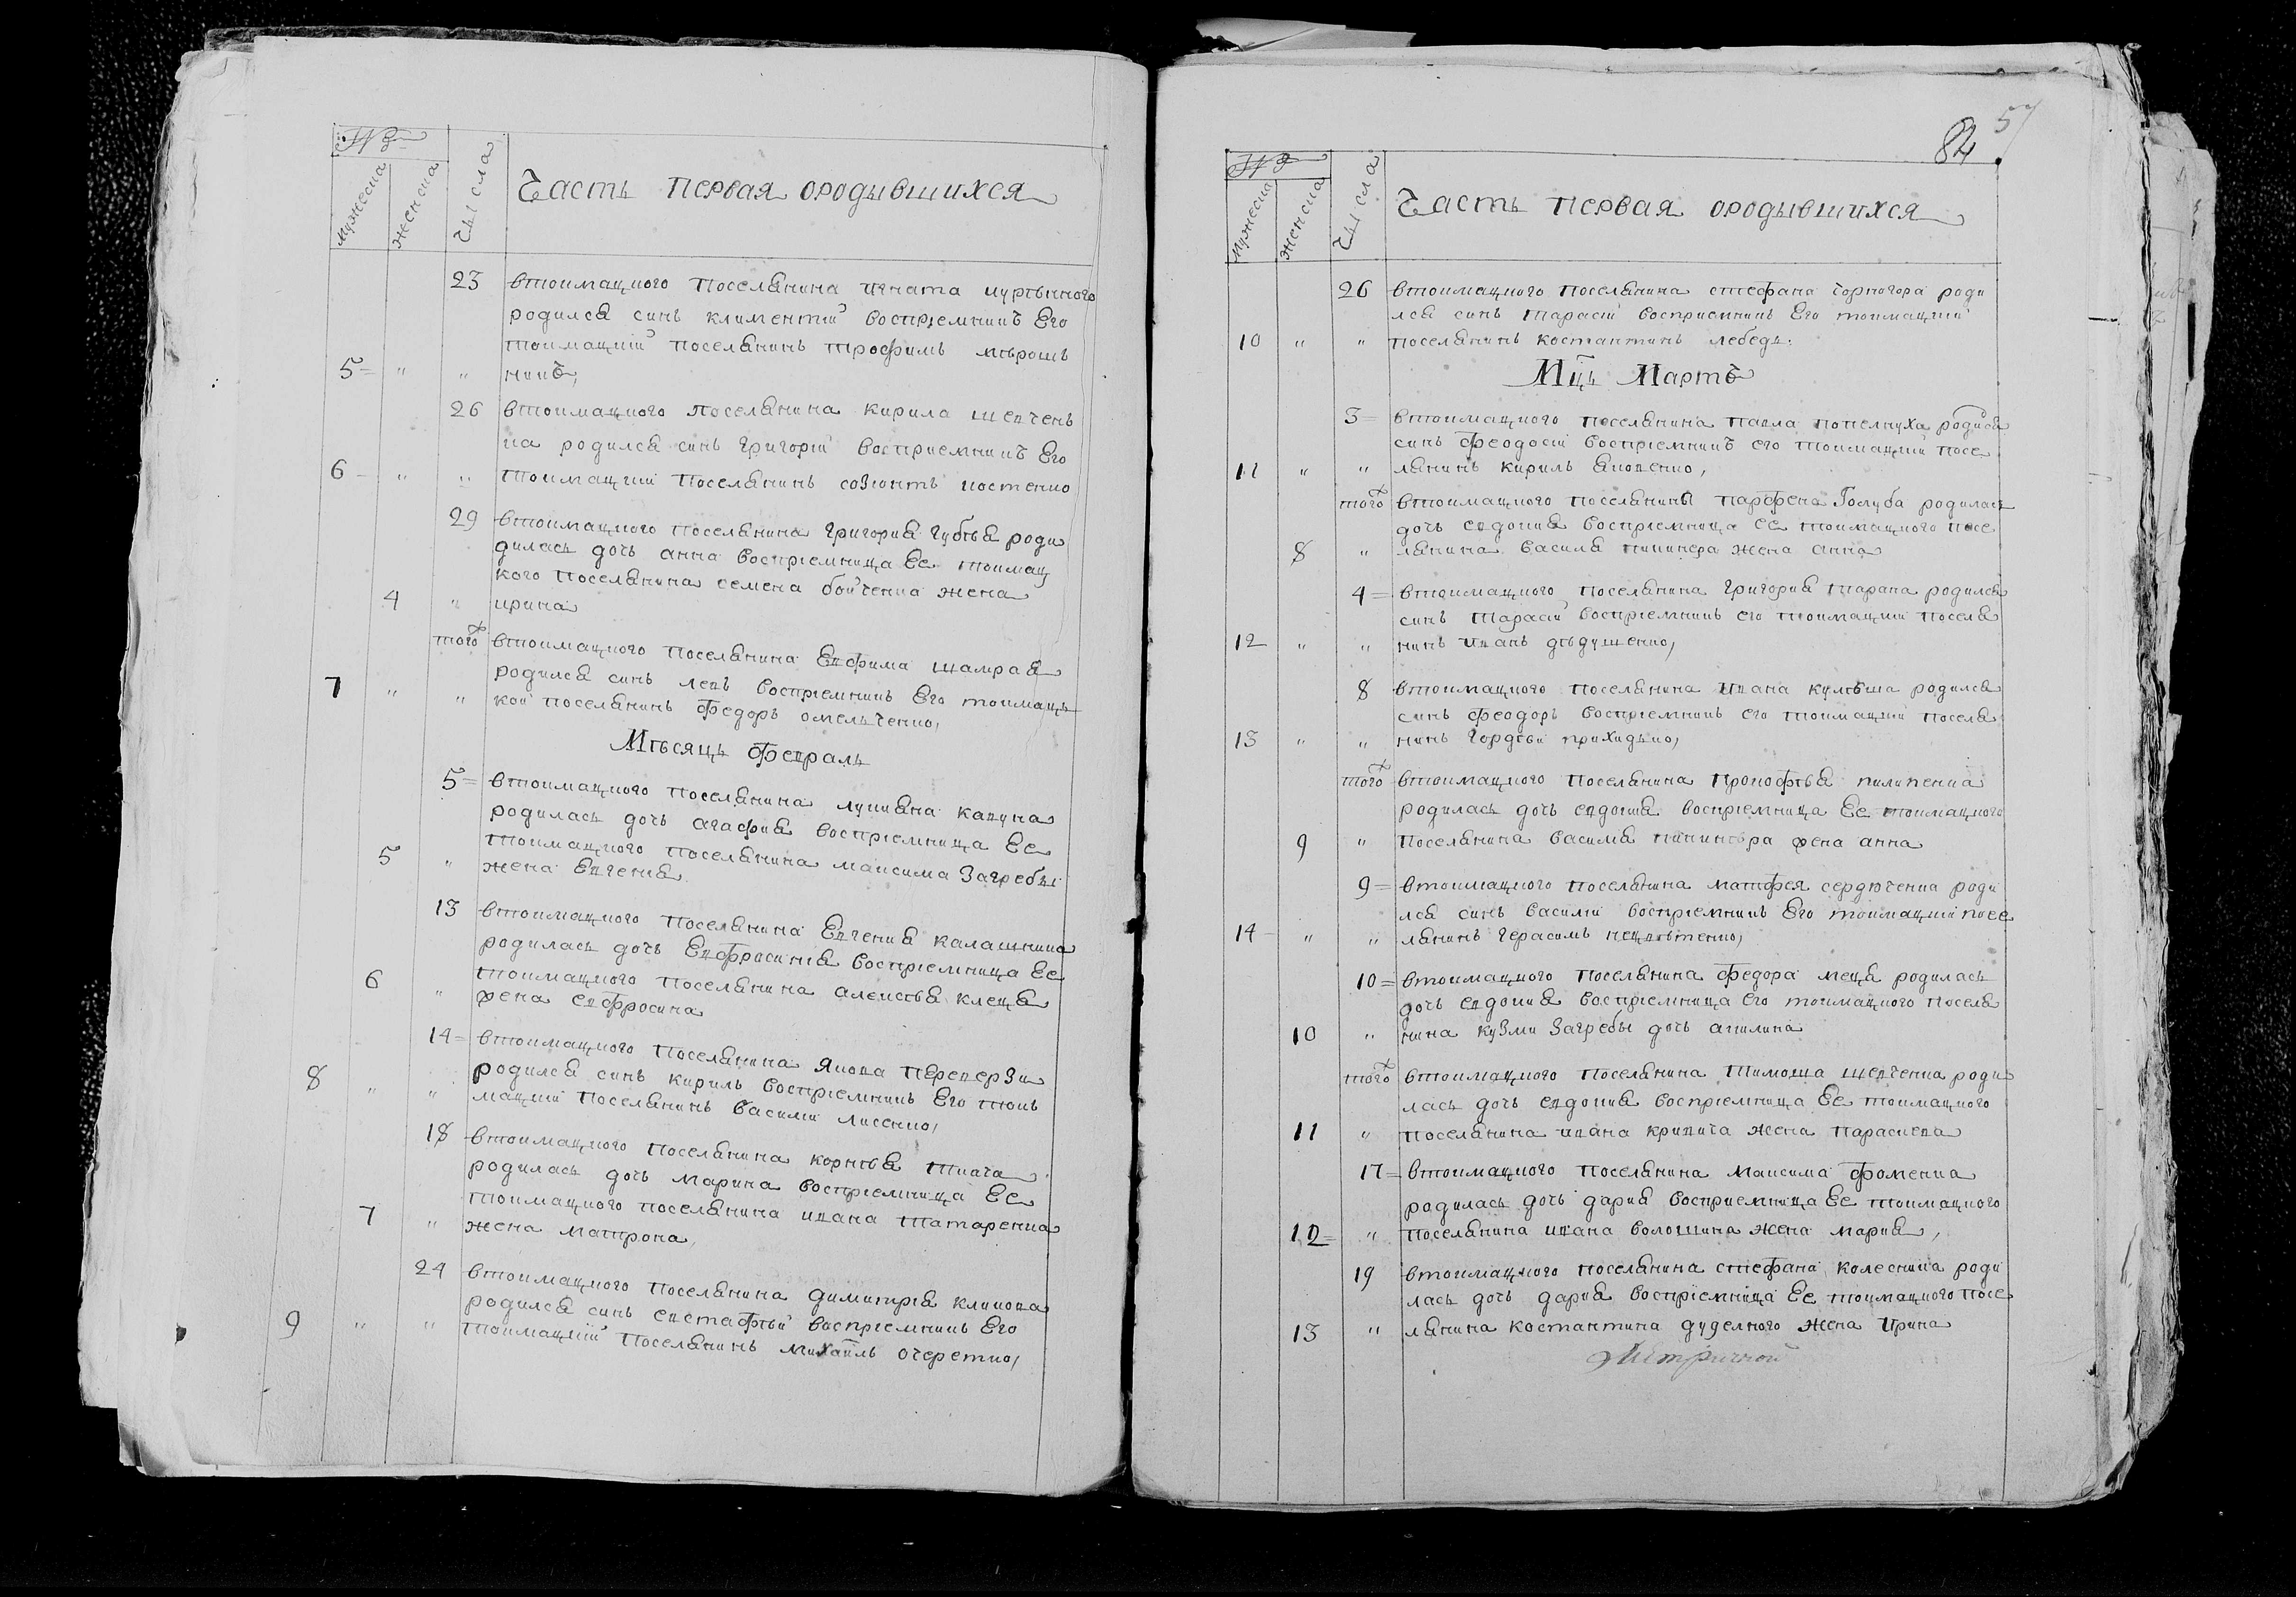 №
мужеска
женска
Числа
Часть первая ородывшихся
23 втокмацкого поселянина игната
родился синь климентий восприемникъ Его
токмацкий поселянинъ трофимъ мѣрошъ
5 = " " никъ,
26 втокмацкого поселянина кирила шевчень
ка родился синь григорий восприемникъ Его
6 - " " токмацкий поселянинъ созонтъ костенко
29 втокмацкого поселянина григория губѣя роди
дилась дочь анна восприемница Ее токмац
кого поселянина семена бойченка жена
4 " ирина
того ж втокмацкого поселянина Евфима шамрая
родился синь левъ восприемникъ Его токмацъ
7 " " кой поселянинъ федоръ омельченко,
Мѣсяць февраль
5 = втокмацкого поселянина лукиана кавуна
родилась дочь агафия восприемница Ее
токмацкого поселянина максима загребы
5 " жена Евгения
13 втокмацкого поселянина Евгения калашника
родилась дочь Евфросиния восприемница Ее
токмацкого поселянина алексѣя клеця
6 " жена евфросина
14 = втокмацкого поселянина Якова перевер зи
родился синь кирилъ восприемникъ Его токъ
8 " " мацкий поселянинъ василий лисенко,
18 втокмацкого поселянина корнѣя ткача
родилась дочь марина восприемница Ее
токмацкого поселянина ивана татаренка
7 " жена матрона,
24 втокмацкого поселянина димитрия клькова
родился синь евстафий восприемникъ Его
9 " " токмацкий поселянинъ михаилъ очеретко,
84 57
№
мужеска
женска
Числа
Часть первая ородывшихся
26 втокмацкого поселянина стефана чорногора роди
лся синь тарасий восприемникъ Его токмацкий
10 " " поселянинъ костантинъ лебедь.
Мць Мартъ
3 = втокмацкого поселянина павла попелнуха родился
синь феодосий восприемникъ его токмацкий посе
11 " " лянинъ кирилъ яковенко,
того ж втокмацкого поселянина парфена голуба родилась
дочь евдокия восприемница ее токмацкого посе
8 " лянина василя пикинера жена анна
4 = втокмацкого поселянина григория тарана родился
синь тарасий восприемникъ его токмацкий поселя
12 " " нинъ иванъ дѣдушенко,
8 втокмацкого поселянина ивана кулѣша родился
синь феодоръ восприемникъ его токмацкий поселя
13 " " нинъ гордѣй приходько,
того ж втокмацкого поселянина прокофѣя пилипенка
родилась дочь евдокия восприемница Ее токмацкого
9 " поселянина василя пикинѣра жена анна
9 = втокмацкого поселянина матфея сердюченка роди
лся синь василий восприемникъ Его токмацкий посе
14 - " " лянинъ герасимъ нецвѣтенко,
10 = втокмацкого поселянина федора меця родилась
дочь евдокия восприемница его токмацкого поселя
10 " нина кузми загребы дочь акилина
того ж втокмацкого поселянина тимоша шевченка роди
лась дочь евдокия восприемница Ее токмацкого
11 " поселянина ивана кривича жена параскева
17 = втокмацкого поселянина максима фоменка
родилась дочь дария восприемница Ее токмацкого
12 = " поселянина ивана волошина жена мария,
19 втокмацкого поселянина стефана колесника роди
лась дочь дария восприемница Ее токмацкого посе
13 " лянина костантина дуделного жена Ирина
Метричной